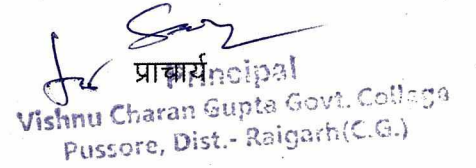 प्राचार्य
Principal
Vishnu Charan Gupta Govt. College
Pussore, Dist.- Raigarh(C.G.)